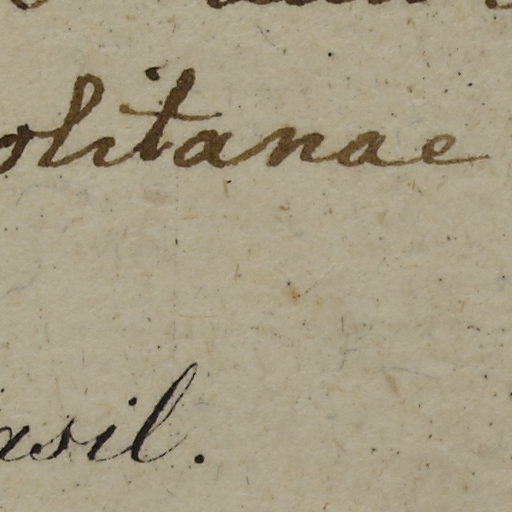 olitanae
asil.